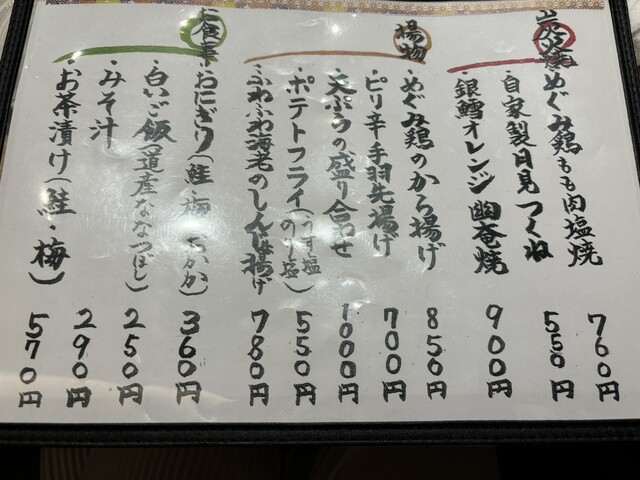 炭火焼
めぐみ鶏もも肉塩焼 760円
自家製月見つくね 550円
銀鱈オレンジ幽庵焼 900円
揚物
めぐみ鶏のから揚げ 850円
ピリ辛手羽先揚げ 700円
天ぷらの盛り合わせ 1000円
ポテトフライ(うす塩・のり塩) 550円
ふわふわ海老のしんじょ揚げ 780円
お食事
おにぎり(鮭・梅・おかか) 360円
白いご飯(道産ななつぼし) 250円
みそ汁 290円
お茶漬け(鮭・梅) 570円